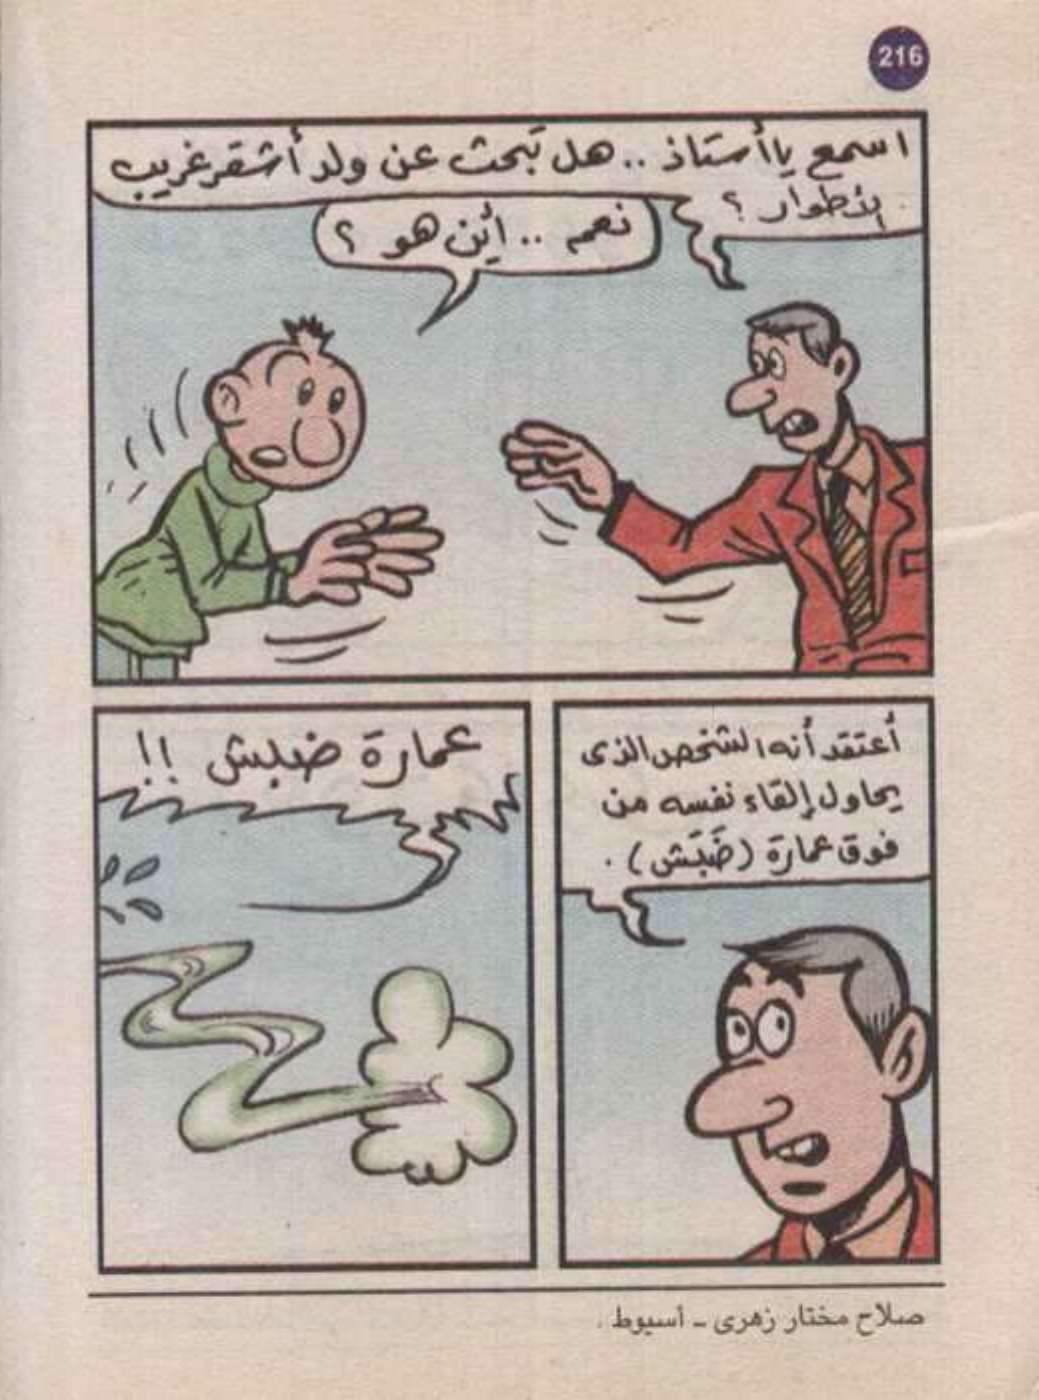 216
اسمع يا أستاذ .. هل تَبحث عن ولد أشقر غريب
الأطوار ؟
نعم .. أين هو ؟
أعتقد أنه الشخص الذى
يحاول إلقاء نفسه من
فوق عمارة (ضَبَش) .
عمارة ضبش !!
صلاح مختار زهرى - أسيوط .